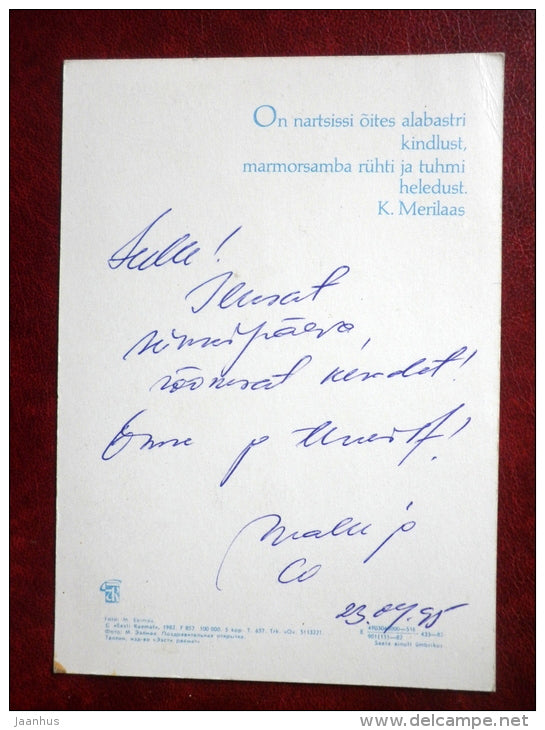 On nartsissi õites alabastri
kindlust,
marmorsamba rühti ja tuhmi
heledust.
K. Merilaas
Ilusat
sünnipäeva,
rõõmsat kevadet!
Õnne ja
Malle ja
Co
23.04.95
Foto: M.
© «Eesti Raamat», 1982. F 857. 100 000. 5 kop. T. 657. Trk. «O». 5113221.
Фото: М. Ээлмаа. Поздравительная открытка.
Таллин, изд-во «Ээсти раамат»
433—82
901(15)—82
Saata ainult ümbrikus
jaanhus
www.delcampe.net